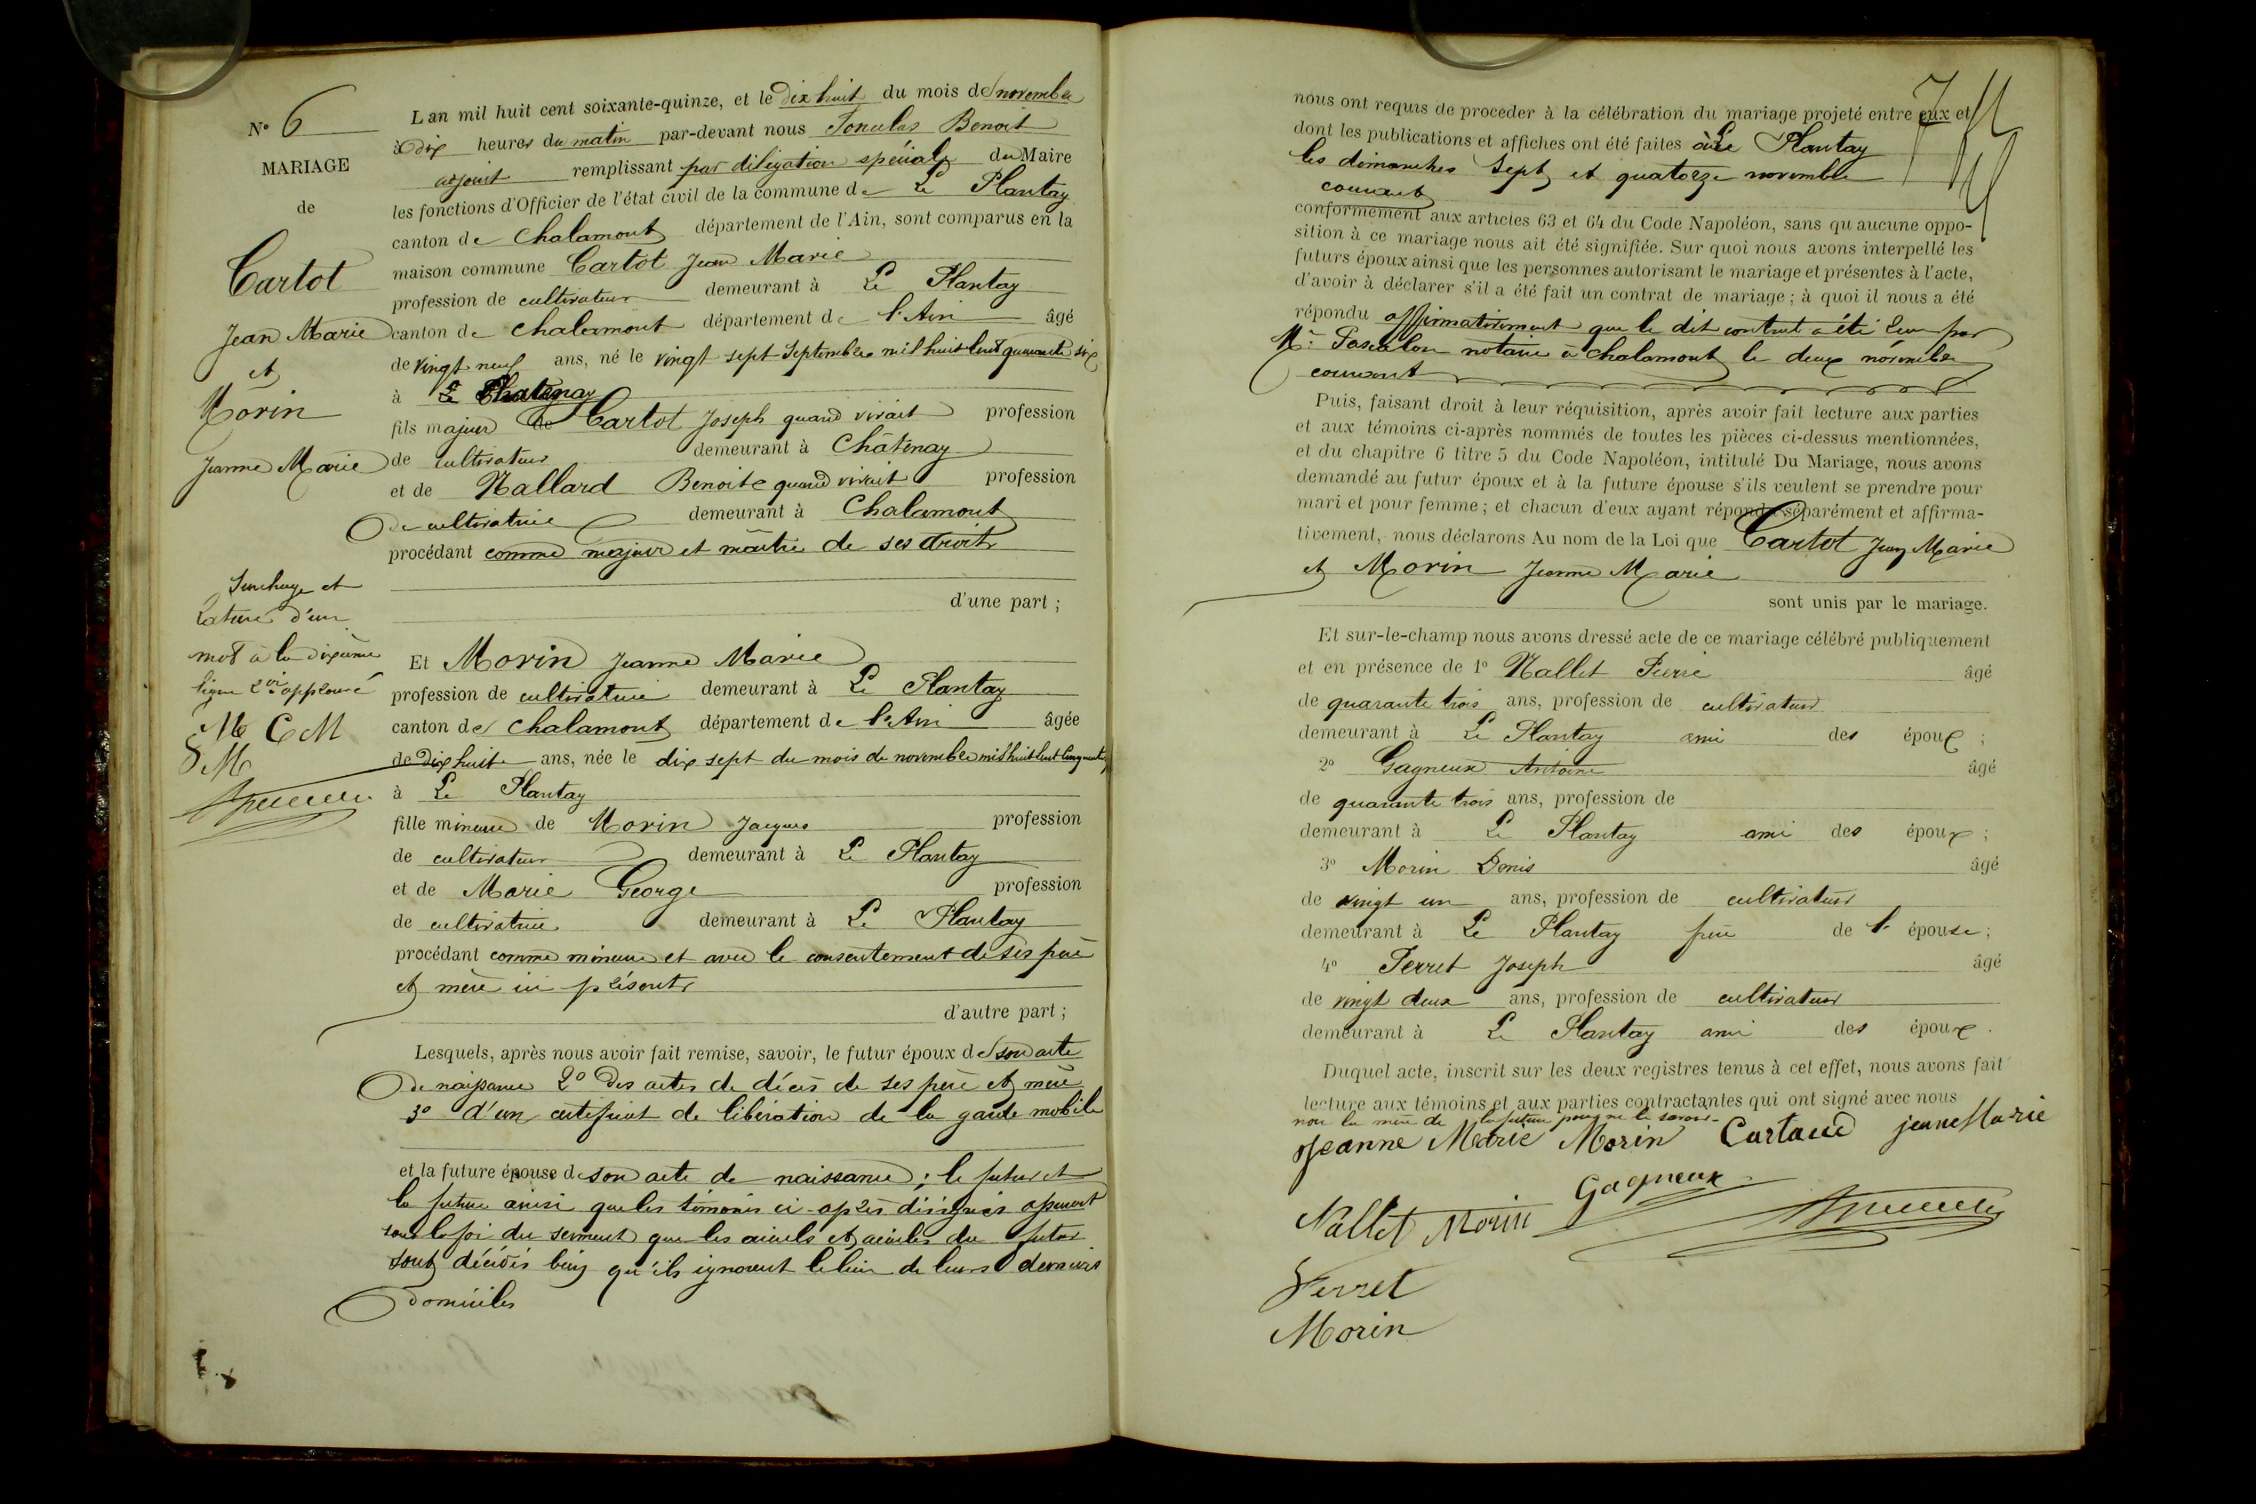 N° 6
MARIAGE
de
Cartot
Jean Marie
et
Morin
Jeanne Marie
Surcharge et
rature d'un
mot à la dixième
ligne approuvé
M C M
M
L'an mil huit cent soixante-quinze, et le dix huit du mois de novembre
à dix heures du matin par-devant nous Benoit
adjoint remplissant par délégation spéciale du Maire
les fonctions d'Officier de l'état civil de la commune de Le Plantay
canton de Chalamont département de l'Ain, sont comparus en la
maison commune Cartot Jean Marie
profession de cultivateur demeurant à Le Plantay
canton de Chalamont département de l'Ain âgé
de vingt neuf ans, né le vingt sept Septembre mil huit cent quarante six
à Chatenay
fils majeur de Cartot Joseph quand vivait profession
de cultivateur demeurant à Châtenay
et de Nallard Benoite quand vivait profession
de cultivatrice demeurant à Chalamont
procédant comme majeur et maître de ses droits
d'une part ;
Et Morin Jeanne Marie
profession de cultivatrice demeurant à Le Plantay
canton de Chalamont département de l'Ain âgée
de dix huit ans, née le dix sept du mois de novembre mil huit cent cinquante
à Le Plantay
fille mineure de Morin Jacques profession
de cultivateur demeurant à Le Plantay
et de Marie George profession
de cultivatrice demeurant à Le Plantay
procédant comme mineure et avec le consentement de ses père
et mère ici présents
d'autre part ;
Lesquels, après nous avoir fait remise, savoir, le futur époux de son acte
de naissance 2° des actes de décès de ses père et mère
3° d'un certificat de libération de la garde mobile
et la future épouse de son acte de naissance ; le futur et
la future ainsi que les témoins ci-après désignés assurent
sous la foi du serment que les aieuls et aieules du futur
sont décédés bien qu'ils ignorent le lieu de leurs derniers
domiciles
nous ont requis de procéder à la célébration du mariage projeté entre eux et
dont les publications et affiches ont été faites à Le Plantay
les dimanches Sept et quatorze novembre
courant
conformément aux articles 63 et 64 du Code Napoléon, sans qu'aucune oppo-
sition à ce mariage nous ait été signifiée. Sur quoi nous avons interpellé les
futurs époux ainsi que les personnes autorisant le mariage et présentes à l'acte,
d'avoir à déclarer s'il a été fait un contrat de mariage ; à quoi il nous a été
répondu affirmativement que le dit contrat a été reçu par
Me notaire à Chalamont le deux novembre
courant
Puis, faisant droit à leur réquisition, après avoir fait lecture aux parties
et aux témoins ci-après nommés de toutes les pièces ci-dessus mentionnées,
et du chapitre 6 titre 5 du Code Napoléon, intitulé Du Mariage, nous avons
demandé au futur époux et à la future épouse s'ils veulent se prendre pour
mari et pour femme ; et chacun d'eux ayant répondu séparément et affirma-
tivement, nous déclarons Au nom de la Loi que Cartot Jean Marie
et Morin Jeanne Marie
sont unis par le mariage.
Et sur-le-champ nous avons dressé acte de ce mariage célébré publiquement
et en présence de 1° Nallet Pierre âgé
de quarante trois ans, profession de cultivateur
demeurant à Le Plantay ami des époux ;
2° Gagneux Antoine âgé
de quarante trois ans, profession de
demeurant à Le Plantay ami des époux ;
3° Morin Denis âgé
de vingt un ans, profession de cultivateur
demeurant à Le Plantay frère de l' épouse ;
4° Perret Joseph âgé
de vingt deux ans, profession de cultivateur
demeurant à Le Plantay ami des époux.
Duquel acte, inscrit sur les deux registres tenus à cet effet, nous avons fait
lecture aux témoins et aux parties contractantes qui ont signé avec nous
non la mère de la future pour ne le savoir
Jeanne Marie Morin Cartaud jeane Marie
Gagneux
Nallet Morin
Perret
Morin